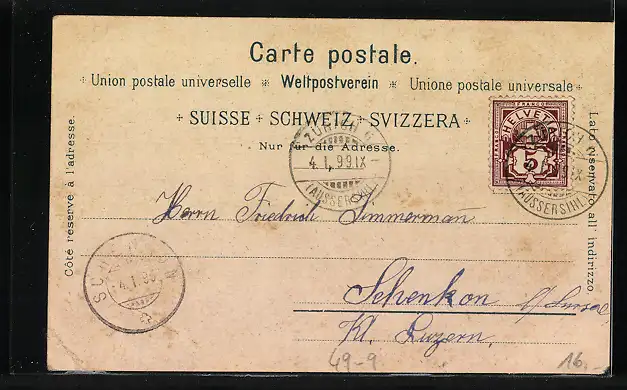 Carte postale.
Union postale universelle * Weltpostverein * Unione postale universale
+ SUISSE + SCHWEIZ + SVIZZERA +
Nur für die Adresse.
Côté réservé à l'adresse.
Lato riservato all' indirizzo
FRANCO
HELVETIA
5
ZÜRICH
4. I. 99 IX
(AUSSERSIHL)
IX
(AUSSERSIHL)
Herrn Friedrich Simmerman
Schenkon b/Sursee
Kt. Luzern.
4. I. 99
49-9
16.-